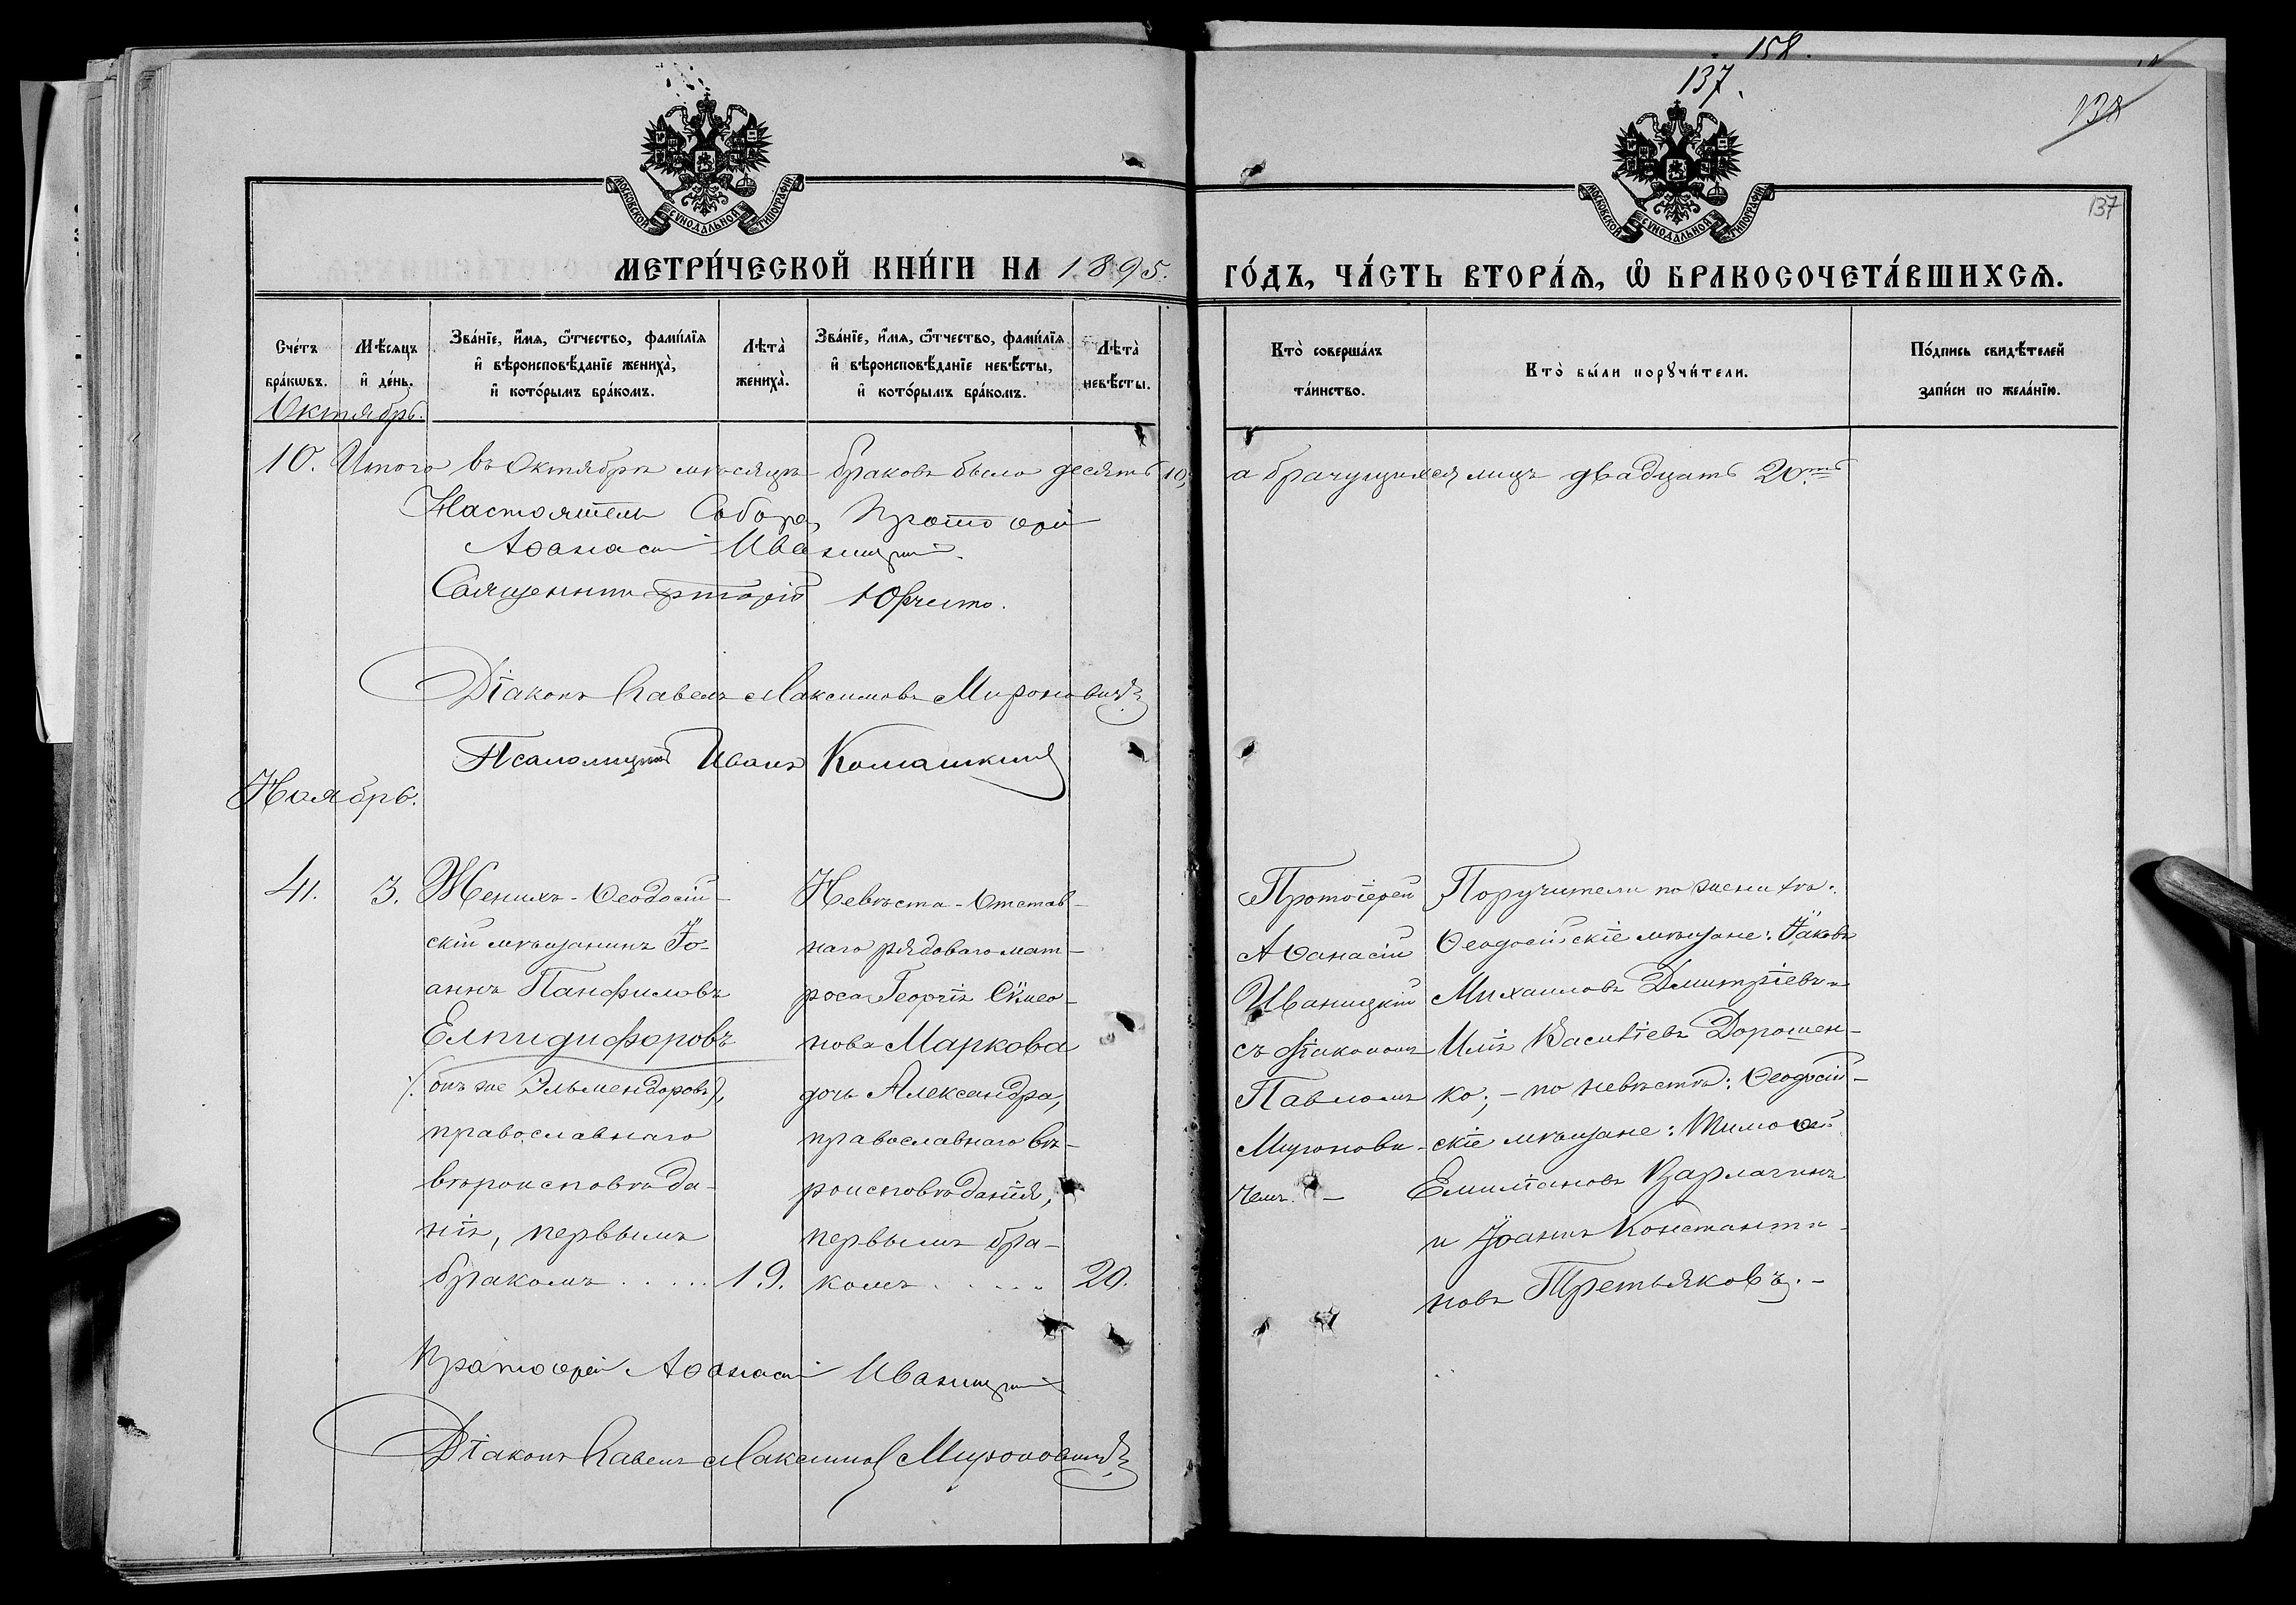 158.
137.
138
137
МОСКОВСКОЙ СУНОДАЛЬНОЙ ТИПОГРАФІИ
МОСКОВСКОЙ СУНОДАЛЬНОЙ ТИПОГРАФІИ
МЕТРИ́ЧЕСКОЙ КНИ́ГИ НА 1895. ГО́ДЪ, ЧА́СТЬ ВТОРА́Ѧ, Ѡ҆ БРАКОСОЧЕТА́ВШИХСѦ.
Сче́тъ бра́кѡвъ.
Мѣ́сяцъ и҆ де́нь.
Зва́нїе, и҆́мѧ, ѻ҆́тчество, фами́лїѧ
и҆ вѣроисповѣ́данїе жениха̀,
и҆ кото́рымъ бра́комъ.
Лѣ́та̀ жениха̀.
Зва́нїе, и҆́мѧ, ѻ҆́тчество, фами́лїѧ
и҆ вѣроисповѣ́данїе невѣ́сты,
и҆ кото́рымъ бра́комъ.
Лѣ́та̀ невѣ́сты.
Кто̀ соверша́лъ
та́инство.
Кто̀ бы́ли порꙋчи́тели.
По́дпись свидѣ́телей
запи́си по жела́нїю.
Октябрь.
10. Итого въ Октябрѣ мѣсяцѣ браковъ было десять 10, а брачущихся лицъ двадцать 20ть
Настоятель Собора, Протоіерей
Аѳанасій Иваницкій.
Священникъ Юрченко.
Діаконъ Павелъ Максимовъ Мироновичъ
Псаломщикъ Иванъ Комашкинъ
Ноябрь.
41. 3.
Женихъ - Ѳеодосій-
скій мѣщанинъ Іо-
аннъ Панфиловъ
Елпидифоровъ
(онъ же Эльмендоровъ),
православнаго
вѣроисповѣда-
нія, первымъ
бракомъ ..... 19.
Невѣста - Отстав-
наго рядоваго мат-
роса Георгія Сѵмео-
нова Маркова
дочь Александра,
православнаго вѣ-
роисповѣданія,
первымъ бра-
комъ ..... 20.
Протоіерей
Аѳанасій
Иваницкій
съ діакономъ
Павломъ
Миронови-
чемъ. —
Поручители по женихѣ:
Ѳеодосійскіе мѣщане: Іаковъ
Михаиловъ Дмитріевъ и
Илія Василіевъ Дорошен-
ко; - по невѣстѣ: Ѳеодосій-
скіе мѣщане: Тимоѳей
Емиліановъ Варлагинъ
и Іоаннъ Константи-
новъ Третьяковъ. -
Протоіерей Аѳанасій Иваницкій
Діаконъ Павелъ Максимовъ Мироновичъ